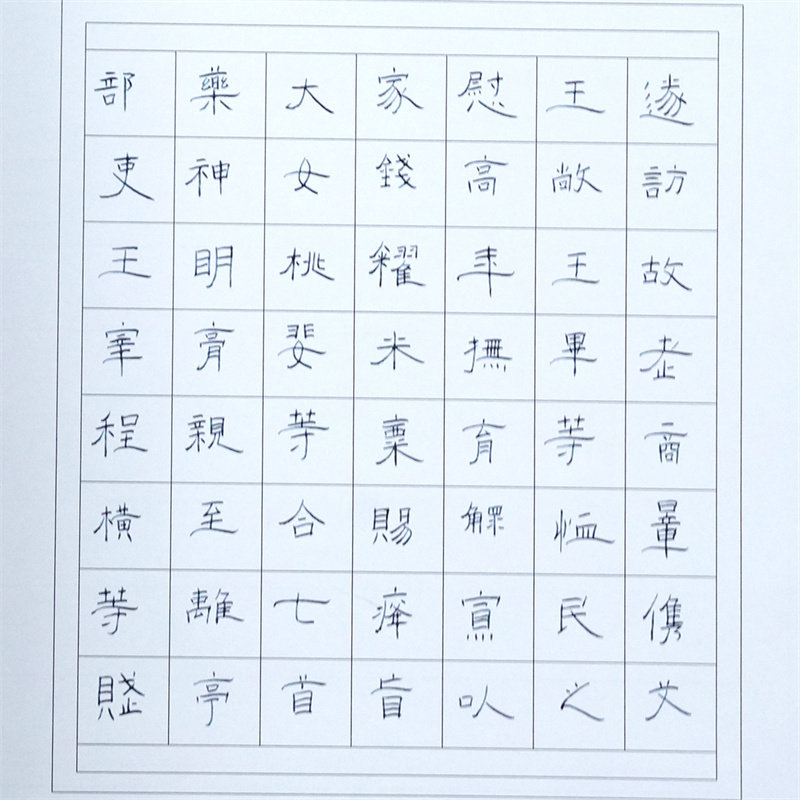 遂訪故老商量儁艾
王敞王畢等恤民之
慰高年撫育鰥寡以
家錢糴米粟賜癃盲
大女桃婓等合七首
藥神明膏親至離亭
部吏王宰程橫等賦